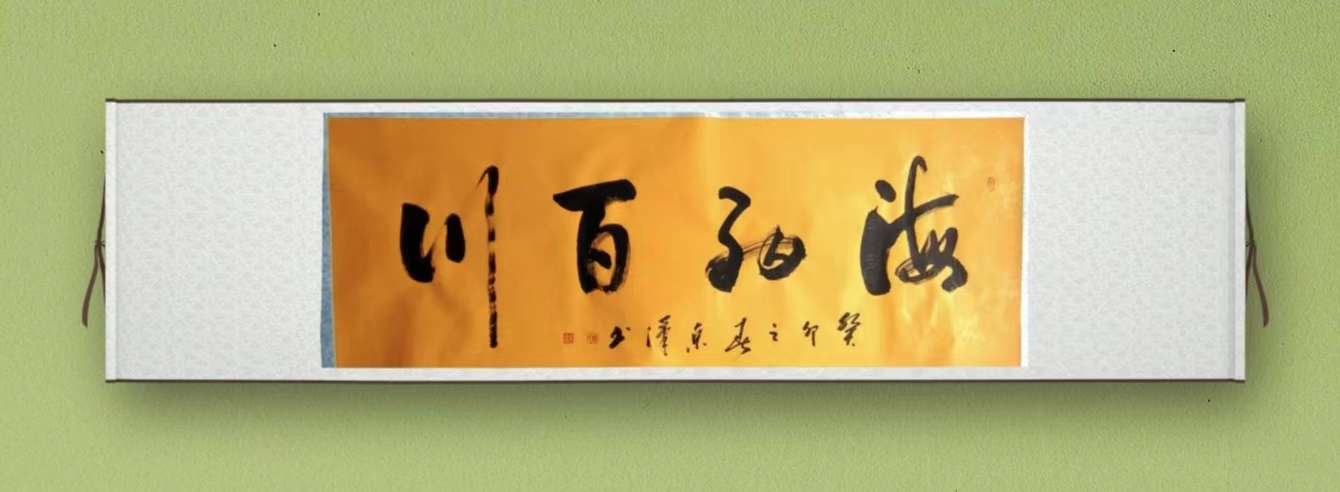 海纳百川
癸卯之春东澤书